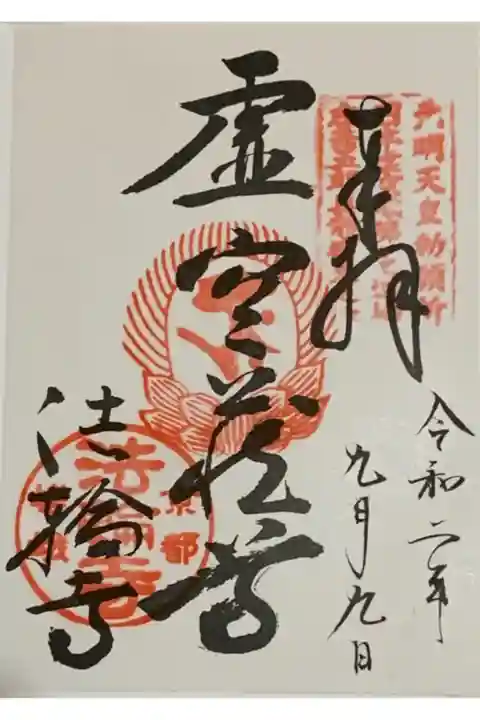 元明天皇勅願所
奉拝
令和二年
九月九日
虚空蔵尊
法輪寺
京都
法輪寺